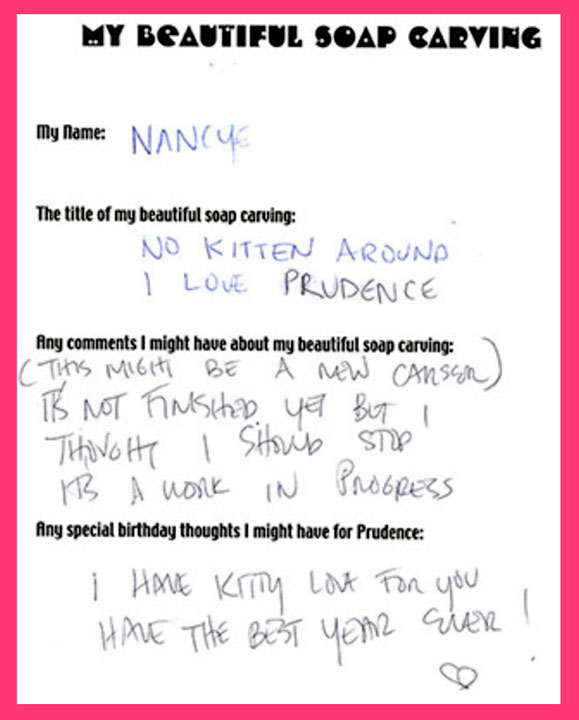 MY BEAUTIFUL SOAP CARVING
My Name: NANCYE
The title of my beautiful soap carving:
NO KITTEN AROUND
I LOVE PRUDENCE
Any comments I might have about my beautiful soap carving:
(THIS MIGHT BE A NEW CAREER)
IT'S NOT FINISHED YET BUT I
THOUGHT I SHOULD STOP
IT'S A WORK IN PROGRESS
Any special birthday thoughts I might have for Prudence:
I HAVE KITTY LOVE FOR YOU
HAVE THE BEST YEAR EVER!